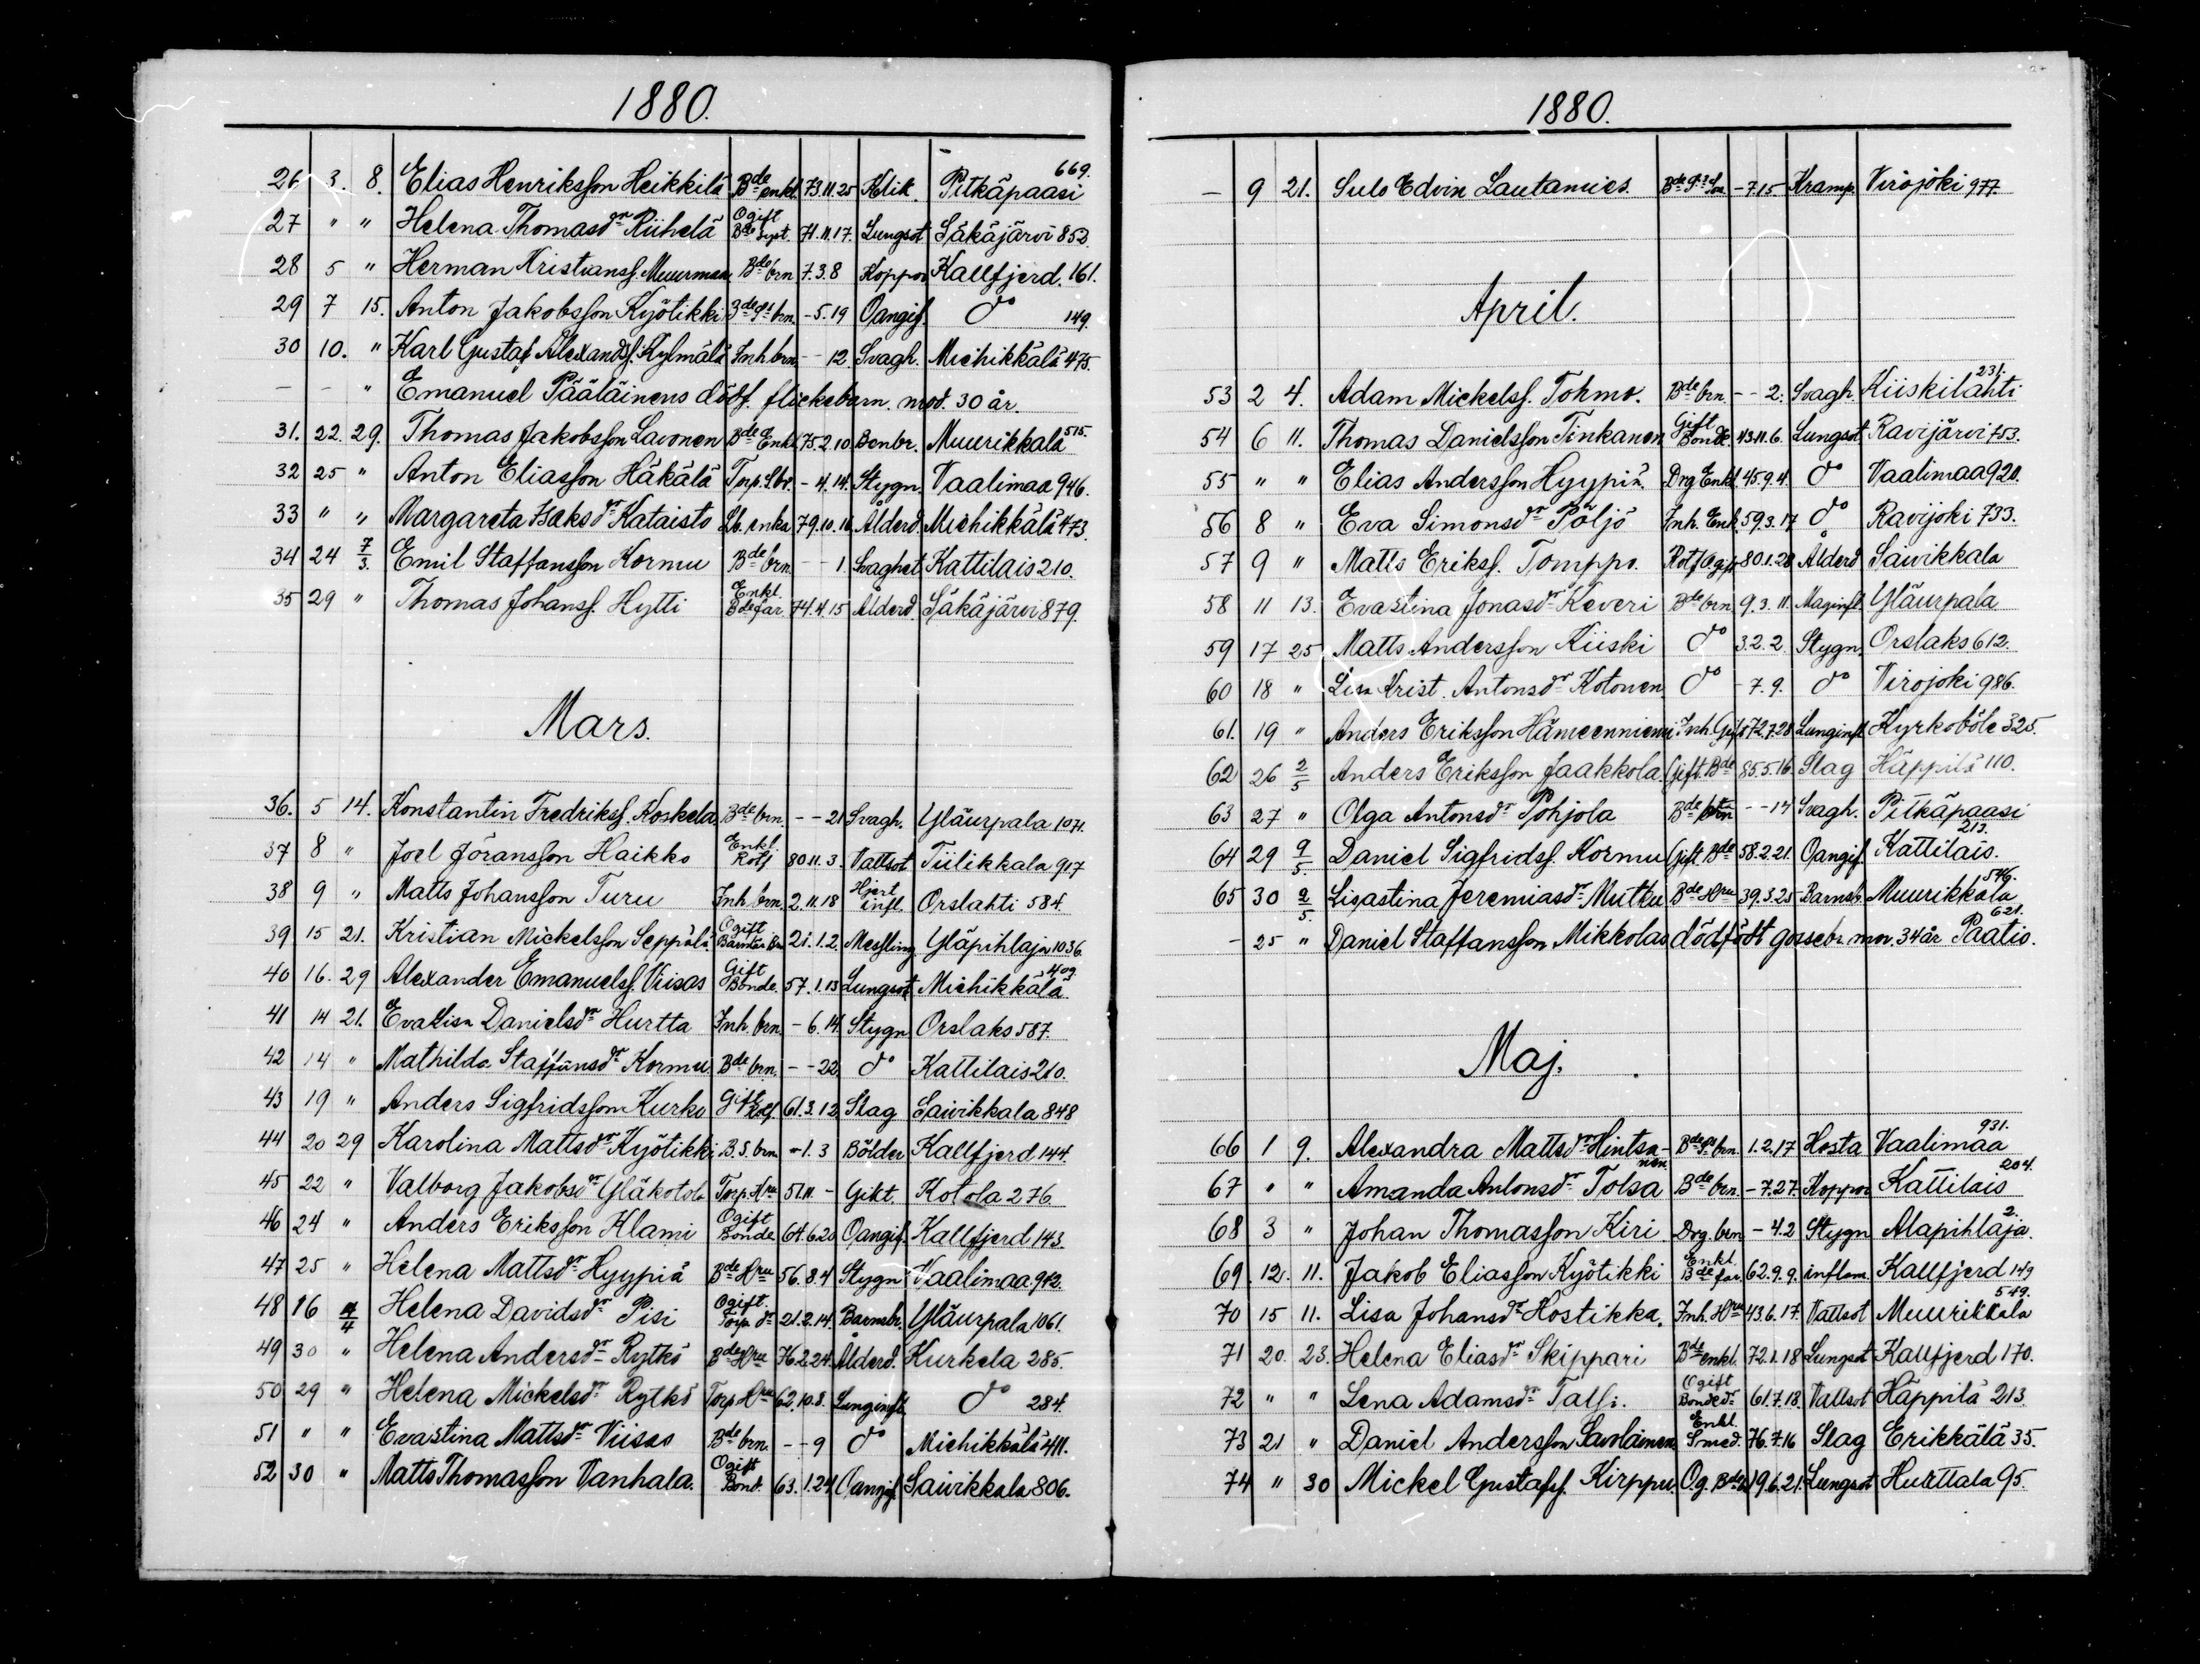 1880.
26 3. 8. Elias Henriksson Heikkilä Bde enkl. 73.11.25 Kolik. Pitkäpaasi 669.
27 " " Helena Thomasdr Riihelä Ogift Bde 71.11.17. Lungsot Säkäjärvi 852.
28 5 " Herman Kristianss. Muurman Bde brn 7.3.8 Koppor Kallfjerd. 161.
29 7 15. Anton Jakobsson Kyötikki Bde Ss brn. - 5.19 Oangif. do 149.
30 10. " Karl Gustaf Alexands. Kylmälä Inh brn - - 12 Svagh. Miehikkälä 475.
- - " Emanuel Pääläinens dödf. flickebarn. mod. 30 år.
31. 22. 29. Thomas Jakobsson Lavonen Bde Enkl 75.2.10 Benbr. Muurikkala 515.
32 25 " Anton Eliasson Häkälä Torp. S.br. - 4.14. Stygn. Vaalimaa 946.
33 " " Margareta Isaksdr Kataisto Lb. enka 79.10.16 Ålderd. Miehikkälä 473.
34 24 7/3. Emil Staffansson Kormu Bde brn - - 1 Svaghet Kattilais 210.
35 29 " Thomas Johanss. Hytti Enkl. Bde far. 74.4.15 Ålderd. Säkäjärvi 879.
Mars.
36. 5 14. Konstantin Fredrikss. Koskela Bde brn. - - 21 Svagh. Yläurpala 1071.
37 8 " Joel Jöransson Haikko Enkl. Rotf 80.11.3. Vattsot Tiilikkala 917
38 9 " Matts Johansson Turu Inh brn. 2.11.18 Hjert infl. Orslahti 584.
39 15 21. Kristian Mickelsson Seppälä Ogift 21.1.2. Messling Yläpihlaja 1036.
40 16. 29 Alexander Emanuelss. Viisas Gift Bonde. 57.1.13 Lungsot Miehikkälä 409.
41 14 21. Evalisa Danielsdr Hurtta Inh. brn. - 6.14. Stygn Orslaks 587.
42 14 " Mathilda Staffansdr Kormu Bde brn. - - 22 do Kattilais 210.
43 19 " Anders Sigfridsson Kurko Gift Rotf 61.3.12 Slag Saivikkala 848
44 20 29 Karolina Mattsdr Kyötikki B.S. brn - 1. 3 Bölder Kallfjerd 144.
45 22 " Valborg Jakobsdr Yläkotola Torp. Hru 51.11 - Gikt. Kotola 276
46 24 " Anders Eriksson Klami Ogift Bonde 64.6.20 Oangif. Kallfjerd 143.
47 25 " Helena Mattsdr Hyypiä Bde Hru 56.8.4 Stygn Vaalimaa 912.
48 16 4/4 Helena Davidsdr Pisi Ogift. Torp. dr 21.2.14. Barnsbr. Yläurpala 1061.
49 30 " Helena Andersdr Rytkö Bde Hru 76.2.24. Ålderd. Kurkela 285.
50 29 " Helena Mickelsdr Rytkö Torp Hru 62.10.8. Lunginfl. do 284.
51 " " Evastina Mattsdr Viisas Bde brn. - - 9 do Miehikkälä 411.
52 30 " Matts Thomasson Vanhala. Ogift Bond. 63.1.24 Oangif. Saivikkala 806.
1880.
- 9 21. Sulo Edvin Lautamies. Bde Ss Son - 7.15 Kramp. Virojoki 977.
April.
53 2 4. Adam Mickelss. Tohmo. Bde brn. - - 2. Svagh. Kiiskilahti 231.
54 6 11. Thomas Danielsson Tinkanen Gift Bonde. 43.11.6. Lungsot Ravijärvi 753.
55 " " Elias Andersson Hyypiä. Drg Enkl. 45.9.4. do Vaalimaa 920.
56 8 " Eva Simonsdr Poljo Inh. Enk. 59.3.17 do Ravijoki 733.
57 9 " Matts Erikss. Tomppo. Rotf Ogift 80.1.28 Ålderd Saivikkala
58 11 13. Evastina Jonasdr Keveri Bde brn 9.3.11. Maginfl. Yläurpala
59 17 25 Matts Andersson Kiiski do 3.2.2. Stygn. Orslaks 612.
60 18 " Lisa Krist. Antonsdr Kotonen do - 7.9. do Virojoki 986.
61. 19 " Anders Eriksson Hämeenniemi Inh. Gift 72.7.28 Lunginfl. Kyrkoböle 325.
62 26 2/5 Anders Eriksson Jaakkola Gift. Bde 85.5.16. Slag Häppilä 110.
63 27 " Olga Antonsdr Pohjola Bde brn - - 14 Svagh. Pitkäpaasi
64 29 9/5. Daniel Sigfridss. Kormu Gift Bde 58.2.21. Oangif. Kattilais. 213.
65 30 9/5. Lisastina Jeremiasdr Mutku Bde Hru 39.3.25 Barnsb. Muurikkala 546.
- 25 " Daniel Staffansson Mikkolas dödfödt gossebr. mor. 34 år Paatio. 621.
Maj.
66 1 9. Alexandra Mattsdr Hintsanen Bde Ss brn. 1.2.17 Hosta Vaalimaa 931.
67 " " Amanda Antonsdr Tolsa Bde brn. - 7.27. Koppor Kattilais 204.
68 3 " Johan Thomasson Kiri Drg. brn - 4.2 Stygn Alapihlaja. 2.
69. 12. 11. Jakob Eliasson Kyötikki Enkl. Bde far. 62.9.9. inflam. Kallfjerd 149
70 15 11. Lisa Johansdr Hostikka. Inh. Hru 43.6.17. Vattsot Muurikkala 549.
71 20. 23. Helena Eliasdr Skippari Bde enkl. 72.1.18 Lungsot Kallfjerd 170.
72 " " Lena Adamsdr Talsi. Ogift Bondedr 61.7.18. Vattsot Häppilä 213
73 21 " Daniel Andersson Savolainen Enkl. Smed. 76.7.16 Slag Erikkälä 35.
74 " 30 Mickel Gustafss. Kirppu O.g. Bde 19.6.21. Lungsot Hurttala 95.